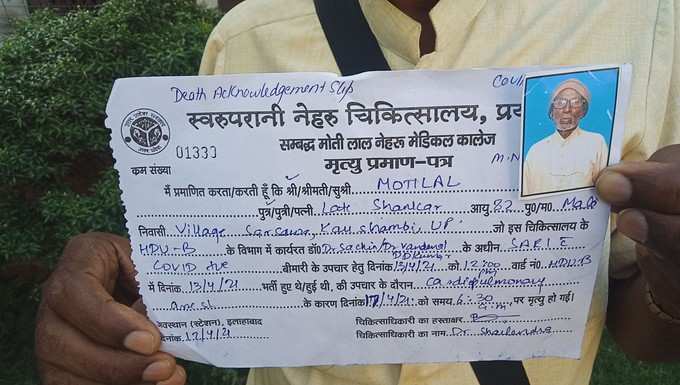 Death Acknowledgement Slip
स्वरुपरानी नेहरु चिकित्सालय, प्र
सम्बद्ध मोती लाल नेहरु मेडिकल कालेज
01333
मृत्यु प्रमाण-पत्र
क्रम संख्या
में प्रमाणित करता/करती हूँ कि श्री/श्रीमती/सुश्री MOTILAL
पुत्र/पुत्री/पत्नी Late Shankar आयु 82 पु0/म0 Male
निवासी Village Kaushambi UP जो इस चिकित्सालय के
HDU-B के विभाग में कार्यरत डॉ0 Dr Sachin/Dr के अधीन SARI E
COVID +ve बीमारी के उपचार हेतु दिनांक 12/4/21 को 12:00 PM वार्ड नं0 HDU-B
में दिनांक 12/4/21 भर्ती हुए थे/हुई थी, की उपचार के दौरान Cardiopulmonary
arrest के कारण दिनांक 17/4/21 को समय 6:30 पर मृत्यु हो गई।
स्थान (स्टेशन), इलाहाबाद चिकित्साधिकारी का हस्ताक्षर
दिनांक चिकित्साधिकारी का नाम Dr. Shailendra